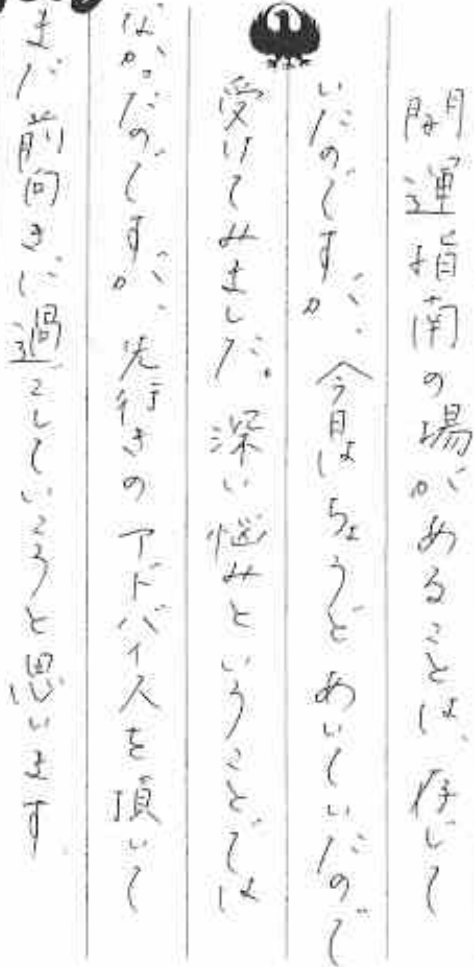 開運指南の場があることは、存じて
いたのですが、今日はちょうどあいていたので
受けてみました。深い悩みということでは
なかったのですが、先行きのアドバイスを頂いて
また前向きに過ごしていこうと思います。